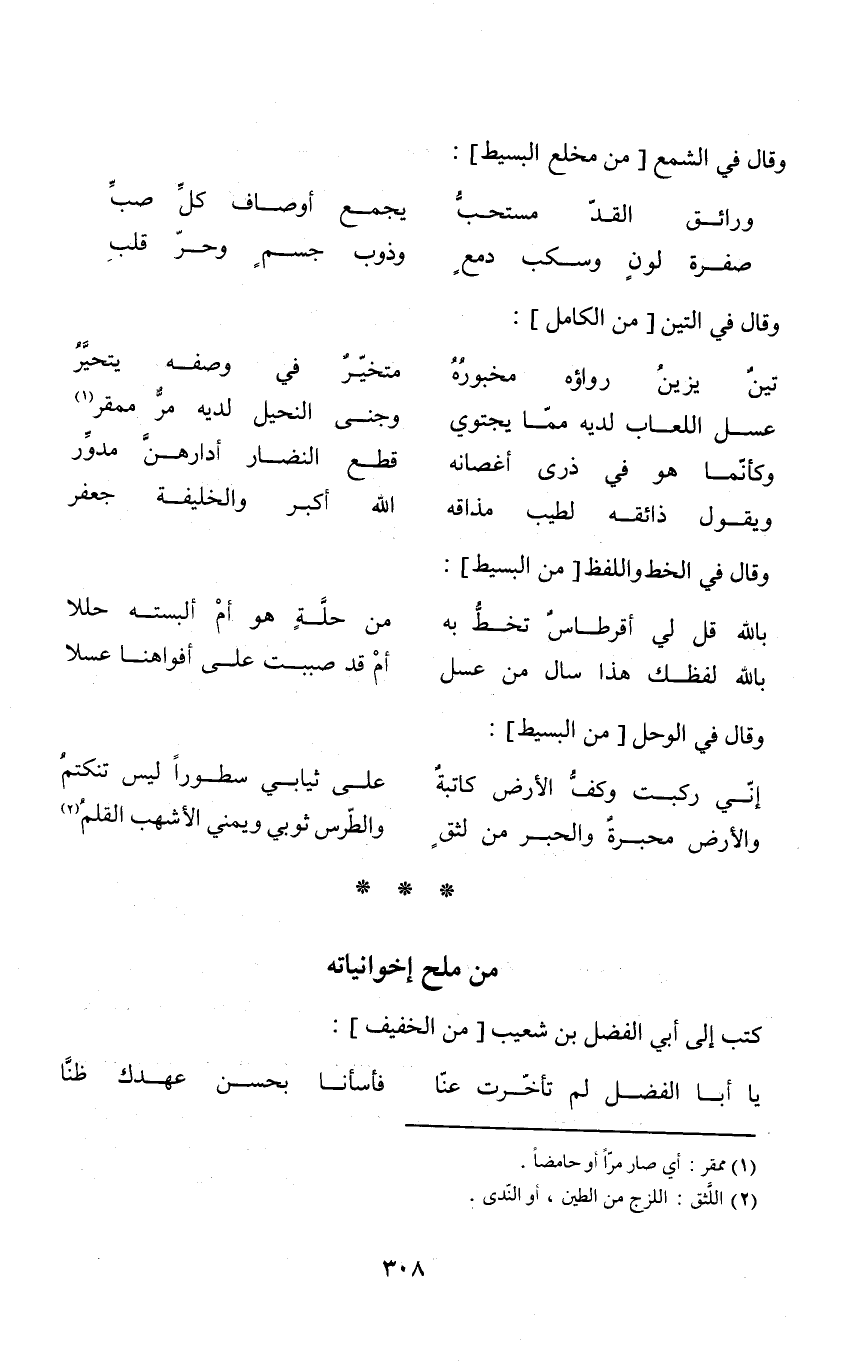 وقال في الشمع [ من مخلع البسيط] :
ورائـق القـدّ مستحبُّ يجمـع أوصـاف كلِّ صبٍّ
صفـرة لونٍ وسـكب دمعٍ وذوب جسـمٍ وحـرّ قلبِ
وقال في التين [ من الكامل ] :
تينٌ يزينُ رواؤه مخبورُهُ متخيّرٌ في وصفـه يتحيَّرُ
عسـل اللعـاب لديه ممّـا يجتوي وجنـى النحيل لديه مرٌّ ممقر(١)
وكأنّمـا هو في ذرى أغصانه قطـع النضـار أدارهـنَّ مدوِّر
ويقـول ذائقـه لطيب مذاقه الله أكبـر والخليفـة جعفر
وقال في الخط واللفظ [ من البسيط] :
بالله قل لي أقرطـاسٌ تخـطُّ به من حلَّـةٍ هو أمْ ألبستـه حللا
بالله لفظـك هذا سال من عسل أمْ قد صببـت علـى أفواهنـا عسلا
وقال في الوحل [ من البسيط] :
إنّـي ركبـت وكفُّ الأرض كاتبةٌ علـى ثيابـي سطـوراً ليس تنكتمُ
والأرض محبـرةٌ والحبـر من لثقٍ والطّرس ثوبي ويمني الأشهب القلمُ(٢)
* * *
من ملح إخوانياته
كتب إلى أبي الفضل بن شعيب [ من الخفيف ] :
يا أبـا الفضـل لم تأخّـرت عنّا فأسأنـا بحسـن عهـدك ظنَّا
(١) ممقر : أي صار مرّاً أو حامضاً .
(٢) اللَّثق : اللزج من الطين ، أو النّدى .
٣٠٨